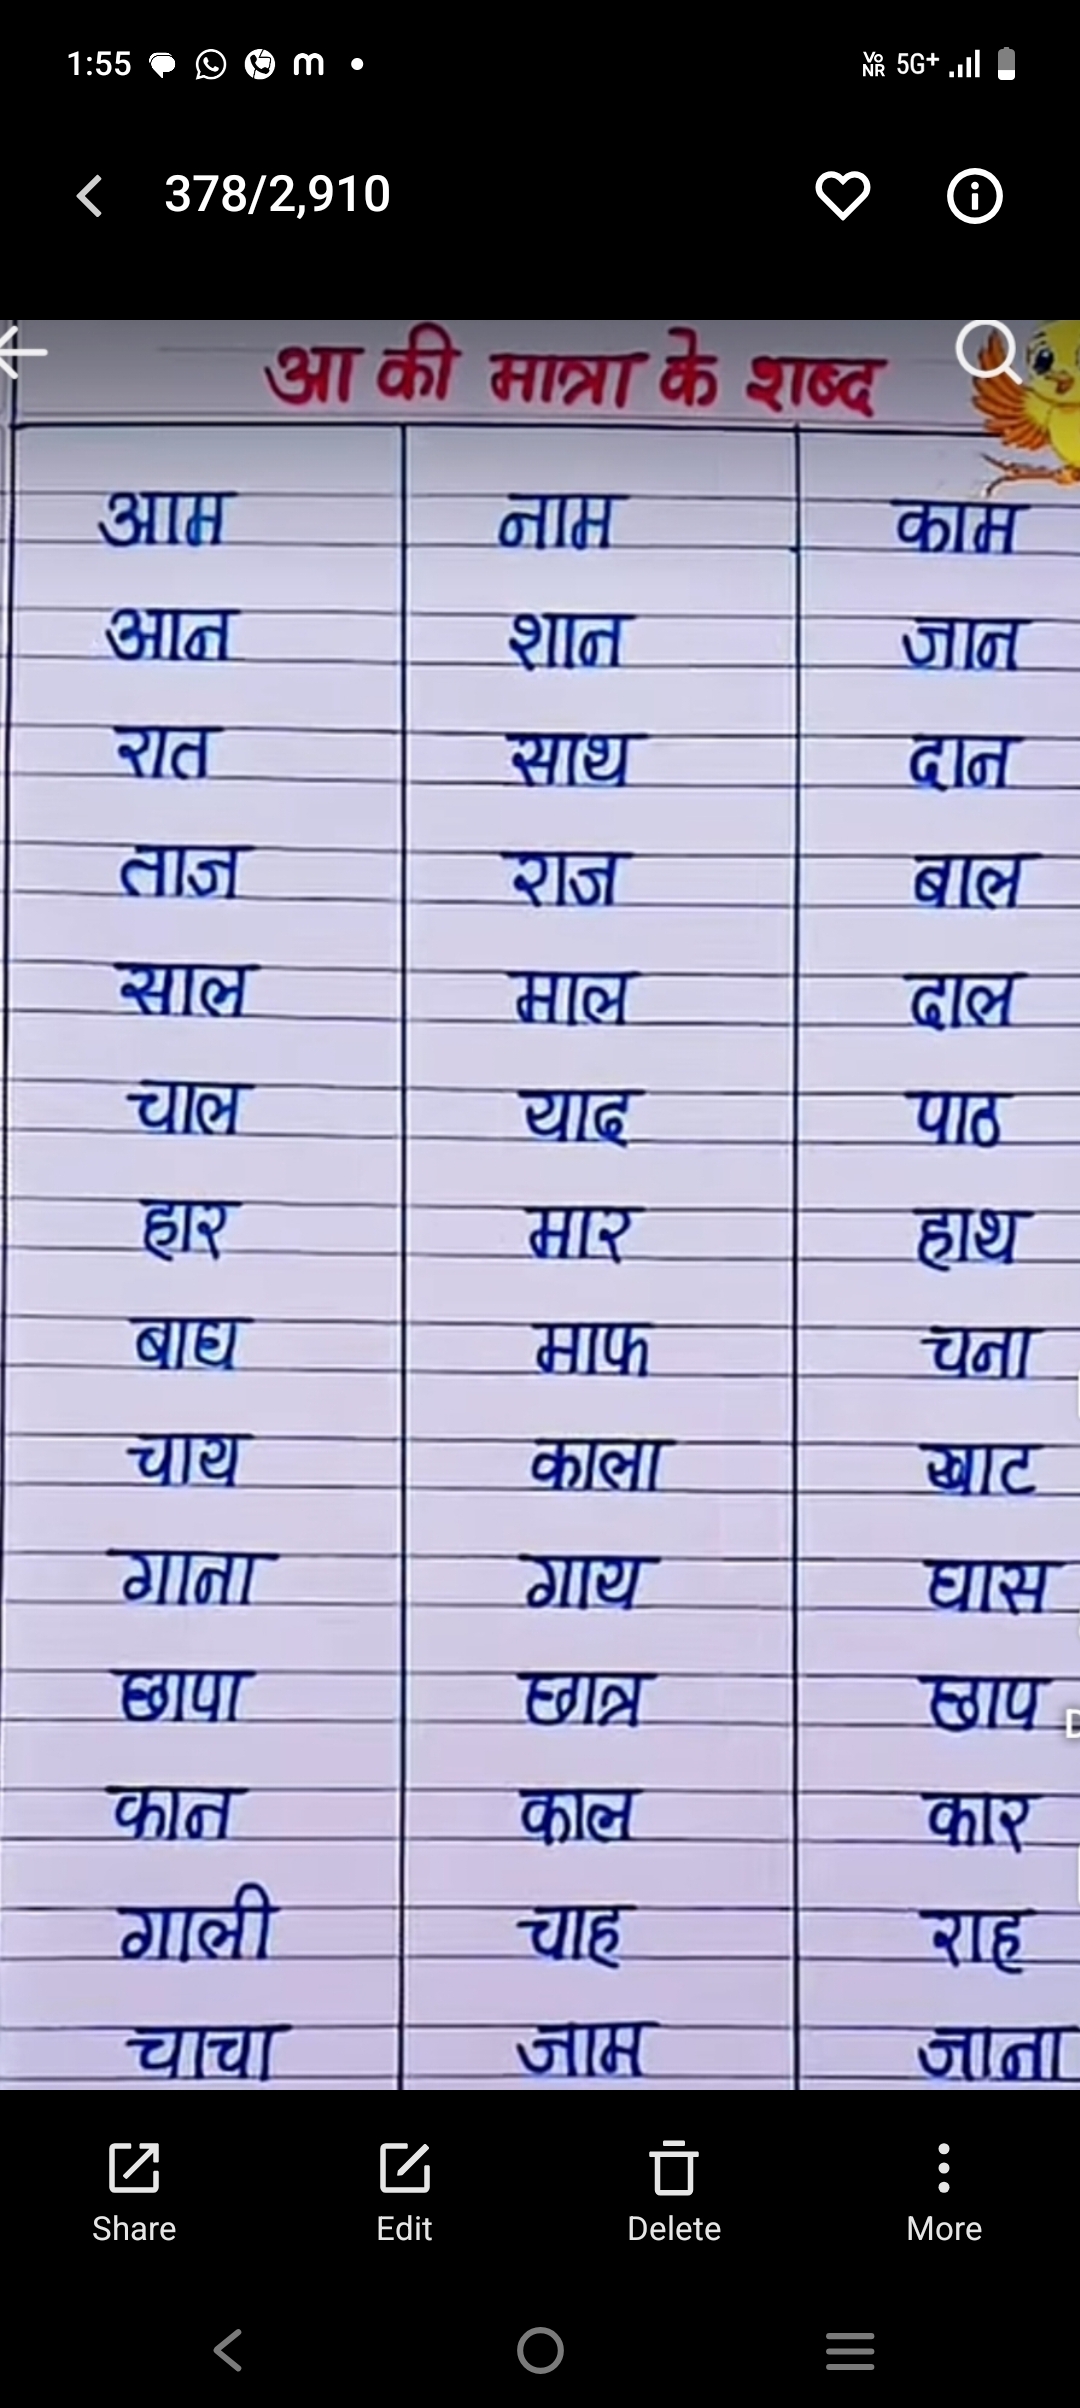 1:55 m VoNR 5G+
378/2,910
आ की मात्रा के शब्द
आम नाम काम
आन शान जान
रात साथ दान
ताज राज बाल
साल माल दाल
चाल याद पाठ
हार मार हाथ
बाघ माफ चना
चाय काला खाट
गाना गाय घास
छापा छात्र छाप
कान काल कार
गाली चाह राह
चाचा जाम जाना
Share Edit Delete More